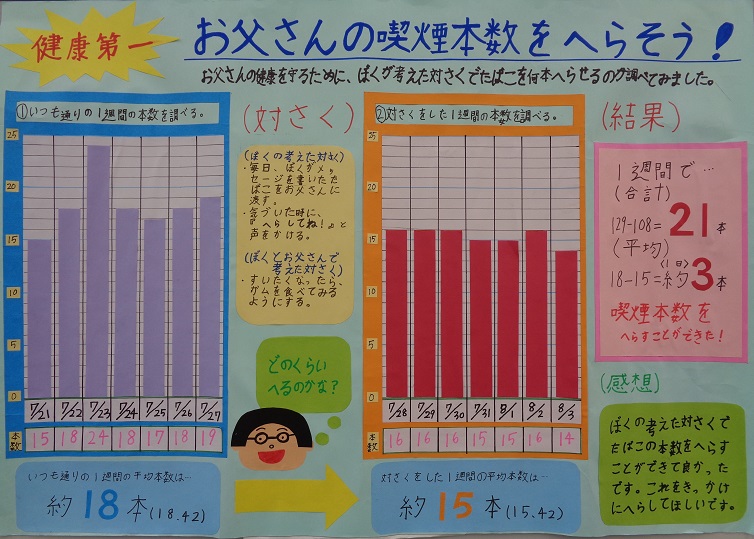 健康第一
お父さんの喫煙本数をへらそう!
お父さんの健康を守るために、ぼくが考えた対さくでたばこを何本へらせるのか調べてみました。
①いつも通りの1週間の本数を調べる。
25
20
15
10
5
0
7/21 7/22 7/23 7/24 7/25 7/26 7/27
本数 15 18 24 18 17 18 19
いつも通りの1週間の平均本数は…
約18本(18.42)
(対さく)
(ぼくの考えた対さく)
・毎日、ぼくがメッ
セージを書いたた
ばこをお父さんに
渡す。
・気づいた時に、
『へらしてね!』と
声をかける。
(ぼくとお父さんで
考えた対さく)
・すいたくなったら、
ガムを食べてみる
ようにする。
どのくらい
へるのかな?
②対さくをした1週間の本数を調べる。
25
20
15
10
5
0
7/28 7/29 7/30 7/31 8/1 8/2 8/3
本数 16 16 16 15 15 16 14
対さくをした1週間の平均本数は…
約15本(15.42)
(結果)
1週間で…
(合計)
129-108=21本
(平均)
〈1日〉
18-15=約3本
喫煙本数を
へらすことができた!
(感想)
ぼくの考えた対さくで
たばこの本数をへらす
ことができて良かった
です。これをきっかけ
にへらしてほしいです。